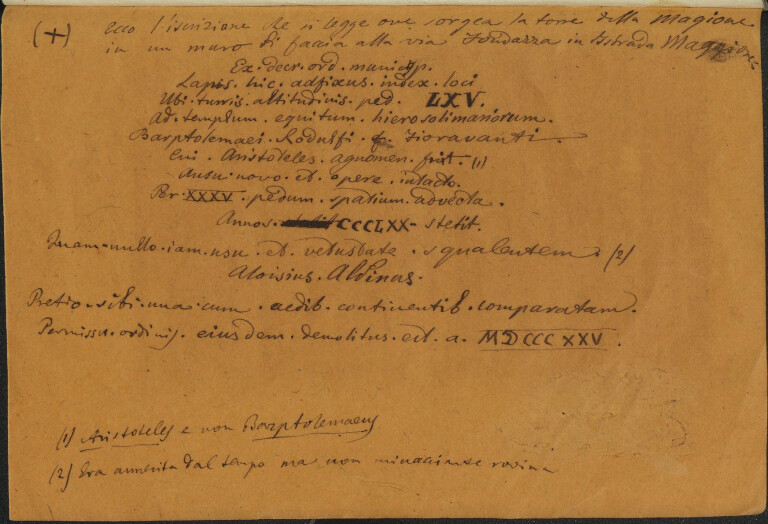 (+) Ecco l'iscrizione che si legge ove sorgea la torre della Magione
in un muro di faccia alla via Fondazza in Istrada Maggiore
Ex. decr. ord. municip.
Lapis. hic. adfixus. index. loci
Ubi. turris. altitudinis. ped. LXV.
Ad. templum. equitum. hierosolimariorum.
Barptolemaei. Rodulfi. f. Fioravanti.
Cui. Aristoteles. agnomen. fuit. (1)
Ausu. novo. et. opere. intacto.
Per. XXXV. pedum. spatium. advecta.
Annos. CCCLXX - stetit.
Quam. nullo. iam. usu. et. vetustate. squalentem. (2)
Aloisius. Aldinus.
Pretio. sibi. una cum. aedib. continentib. comparatam.
Permissu. ordinis. eiusdem. demolitus. est. a. MDCCCXXV.
(1) Aristoteles e non Barptolemaeus
(2) Era annerita dal tempo ma non minacciante rovina